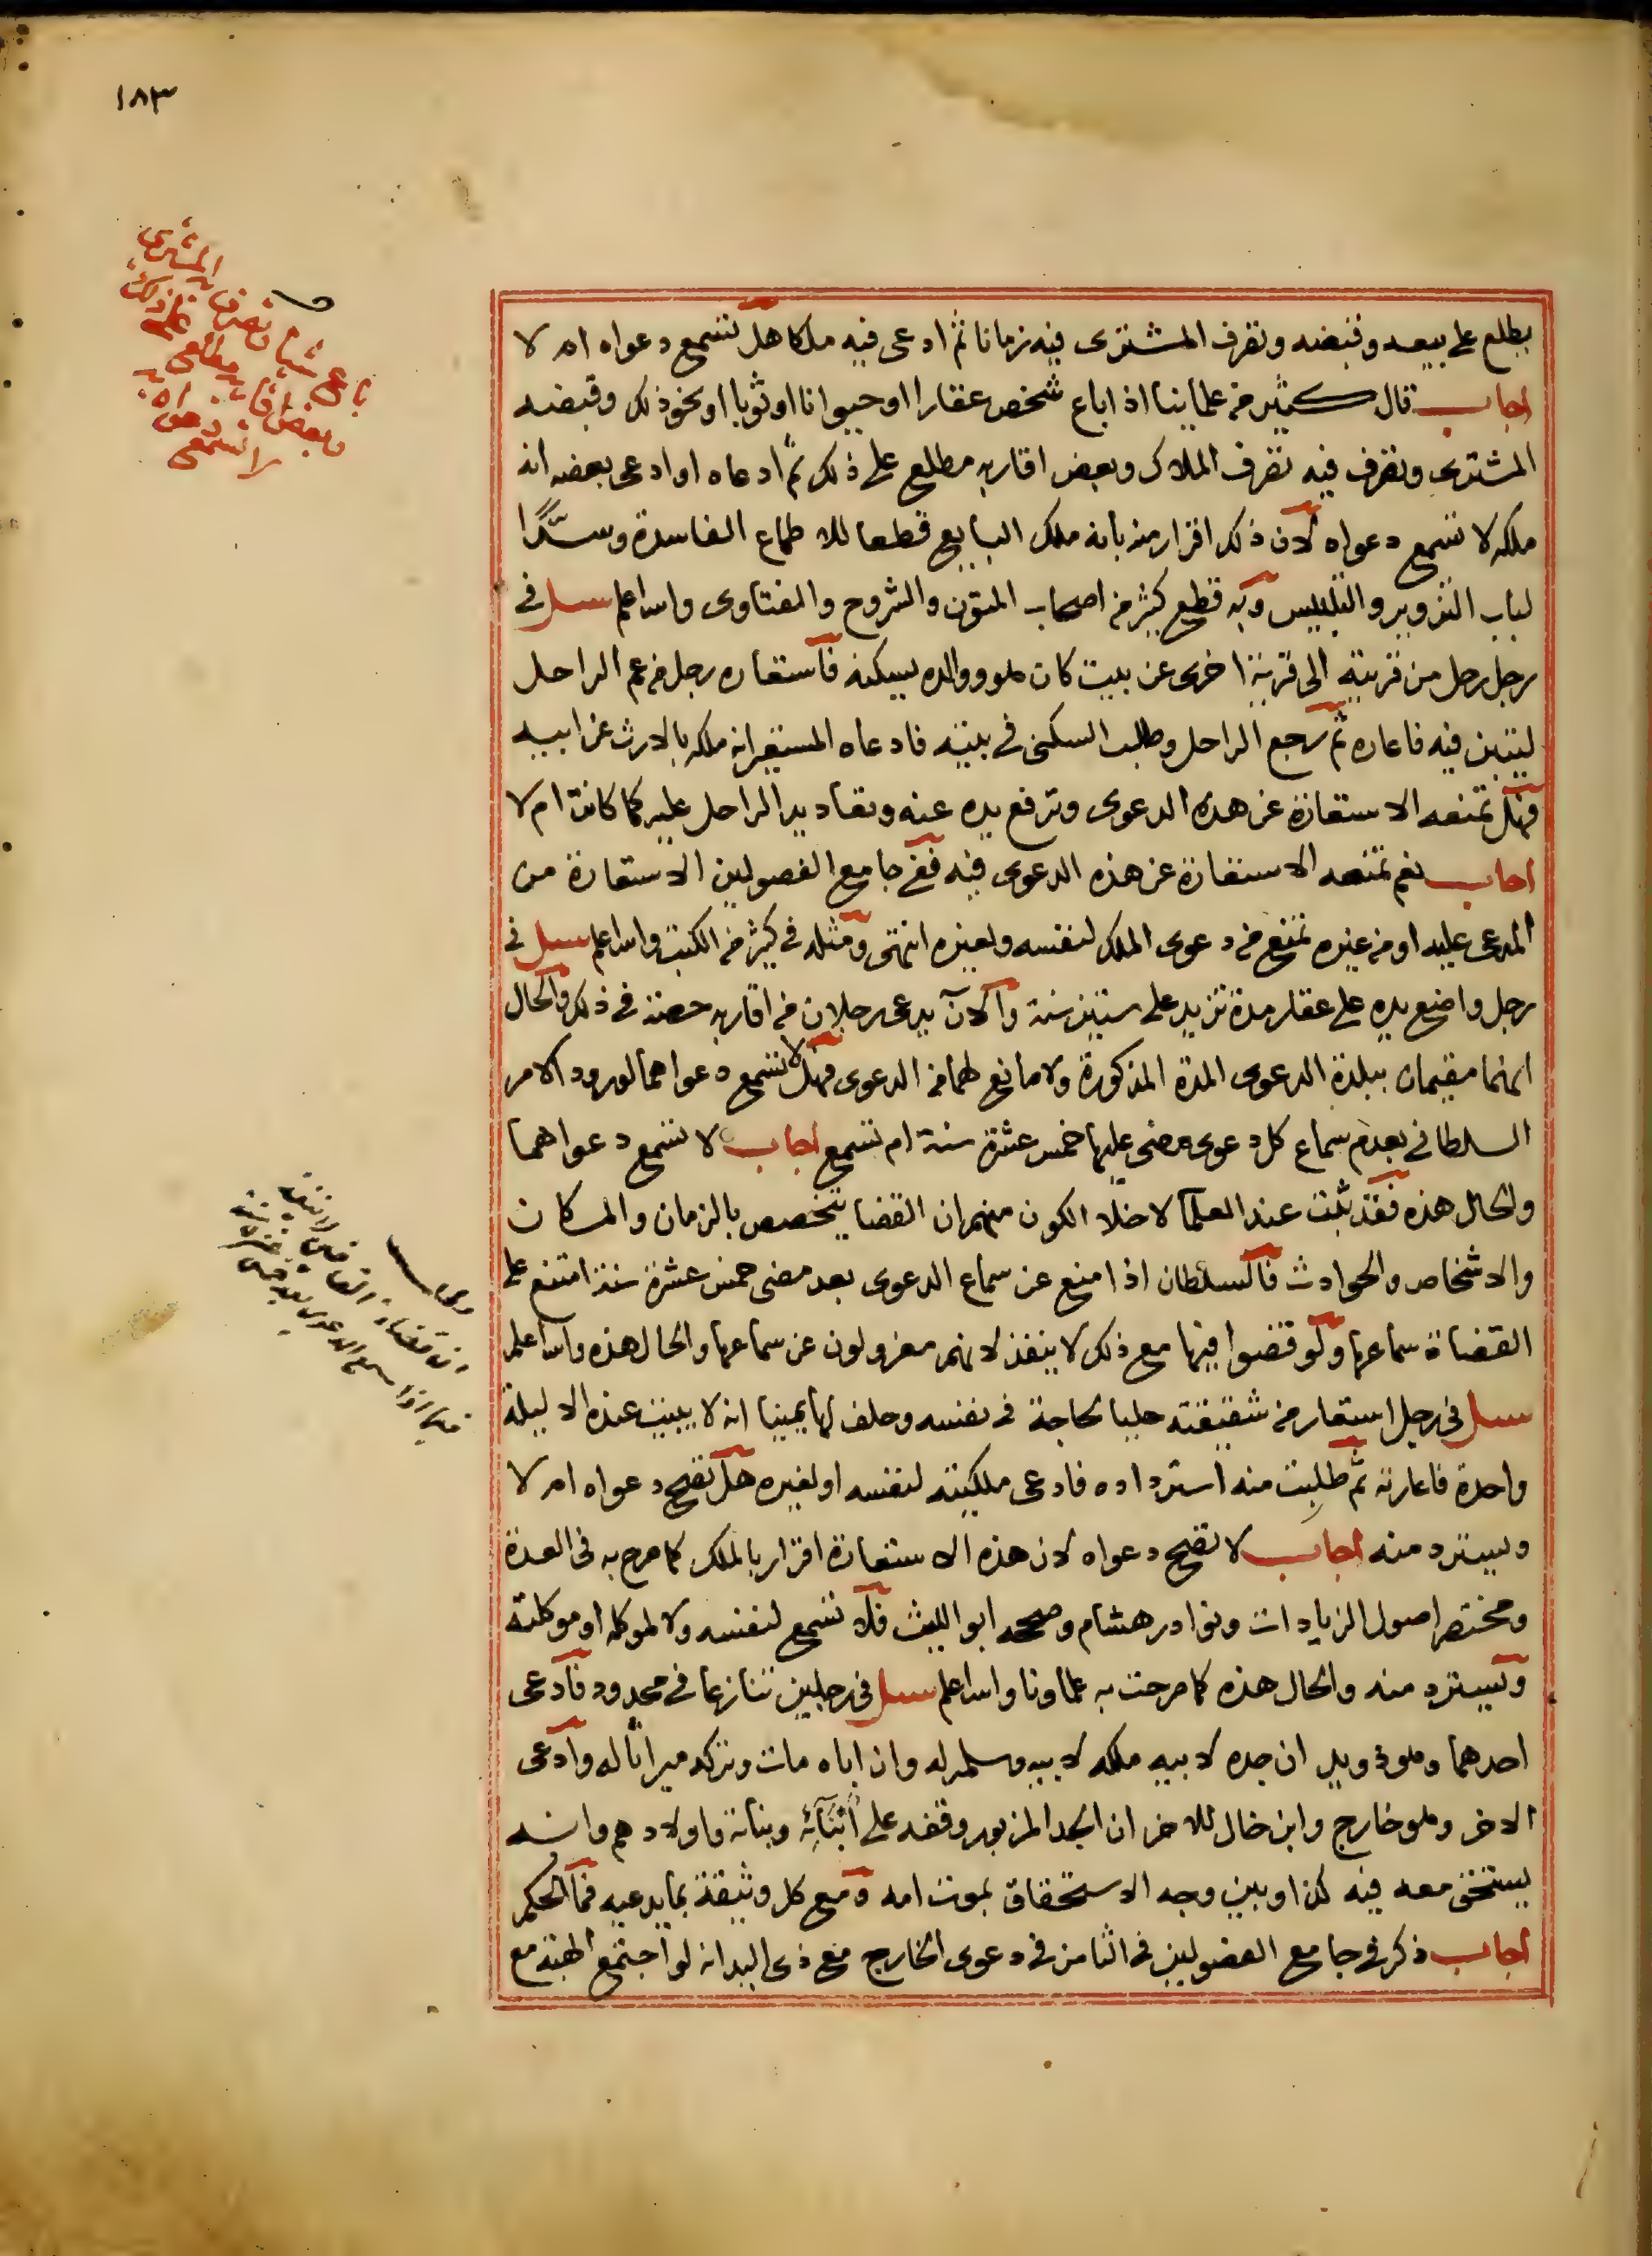 ١٨٣
باع شيئا وتصرف به المشتري
وبعض اقاربه مطلع على ذلك
لا تسمع دعواه
يطلع على بيعه وقبضه وتصرف المشترى فيه زمانا ثم ادعى فيه ملكا هل تسمع دعواه ام لا
اجاب قال كثير من علمائنا اذا باع شخص عقارا او حيوانا او ثوبا او نحو ذلك وقبضه
المشترى وتصرف فيه تصرف الملاك وبعض اقاربه مطلع على ذلك ثم ادعاه او ادعى بعضه انه
ملكه لا تسمع دعواه لان ذلك اقرار منه بانه ملك البايع قطعا للاطماع الفاسدة وسدًّا
لباب التزوير والتلبيس وبه قطع كثير من اصحاب المتون والشروح والفتاوى والله اعلم سئل في
رجل رحل من قريته الى قرية اخرى عن بيت كان هو ووالده يسكنه فاستعاره رجل من عم الراحل
ليتبن فيه فاعاره ثم رجع الراحل وطلب السكنى في بيته فادعاه المستعير انه ملكه بالارث عن ابيه
فهل تمنعه الاستعارة عن هذه الدعوى وترفع يده عنه وتعاد يد الراحل عليه كما كانت ام لا
اجاب نعم تمنعه الاستعارة عن هذه الدعوى فيه ففي جامع الفصولين الاستعارة من
المدعى عليه او من غيره تمنع من دعوى الملك لنفسه ولغيره انتهى ومثله في كثير من الكتب والله اعلم سئل في
رجل واضع يده على عقار مدة تزيد على ستين سنة والآن يدعى رجلان من اقاربه حصته في ذلك والحال
انهما مقيمان ببلدة الدعوى المدة المذكورة ولا مانع لهما من الدعوى فهل لا تسمع دعواهما لورود الامر
السلطاني بعدم سماع كل دعوى مضى عليها خمس عشرة سنة ام تسمع اجاب لا تسمع دعواهما
والحال هذه فقد ثبت عند العلما لاخلا الكون منهم ان القضا يتخصص بالزمان والمكان
والاشخاص والحوادث فالسلطان اذا منع عن سماع الدعوى بعد مضى خمس عشرة سنة امتنع على
القضاة سماعها ولو قضوا فيها مع ذلك لا ينفذ لانهم معزولون عن سماعها والحال هذه والله اعلم
سئل في رجل استعار من شقيقته حليا لحاجة في نفسه وحلف لها يمينا انه لا يبيت عنده الا ليلة
واحدة فاعارته ثم طلبت منه استرداده فادعى ملكيته لنفسه او لغيره هل تصح دعواه ام لا
ويسترد منه اجاب لا تصح دعواه لان هذه الاستعارة اقرار بالملك كما صرح به في العدة
ومختصر اصول الزيادات ونوادر هشام وصححه ابو الليث فلا تسمع لنفسه ولا لموكله او موكلته
ويسترد منه والحال هذه كما صرحت به علماونا والله اعلم سئل في رجلين تنازعا في محدود فادعى
احدهما وهو ذو يد ان جده لابيه ملكه لابيه وسلمه له وان اباه مات وتركه ميراثا له وادعى
الاخر وهو خارج وابن خال للاخر ان الجد المزبور وقفه على أبنائه وبناته واولادهم وانه
يستحق معه فيه كذا وبين وجه الاستحقاق بموت امه ومع كل وثيقة بما يدعيه فما الحكم
اجاب ذكر في جامع الفصولين في الثامن في دعوى الخارج مع ذى اليد انه لو اجتمع الهبة مع